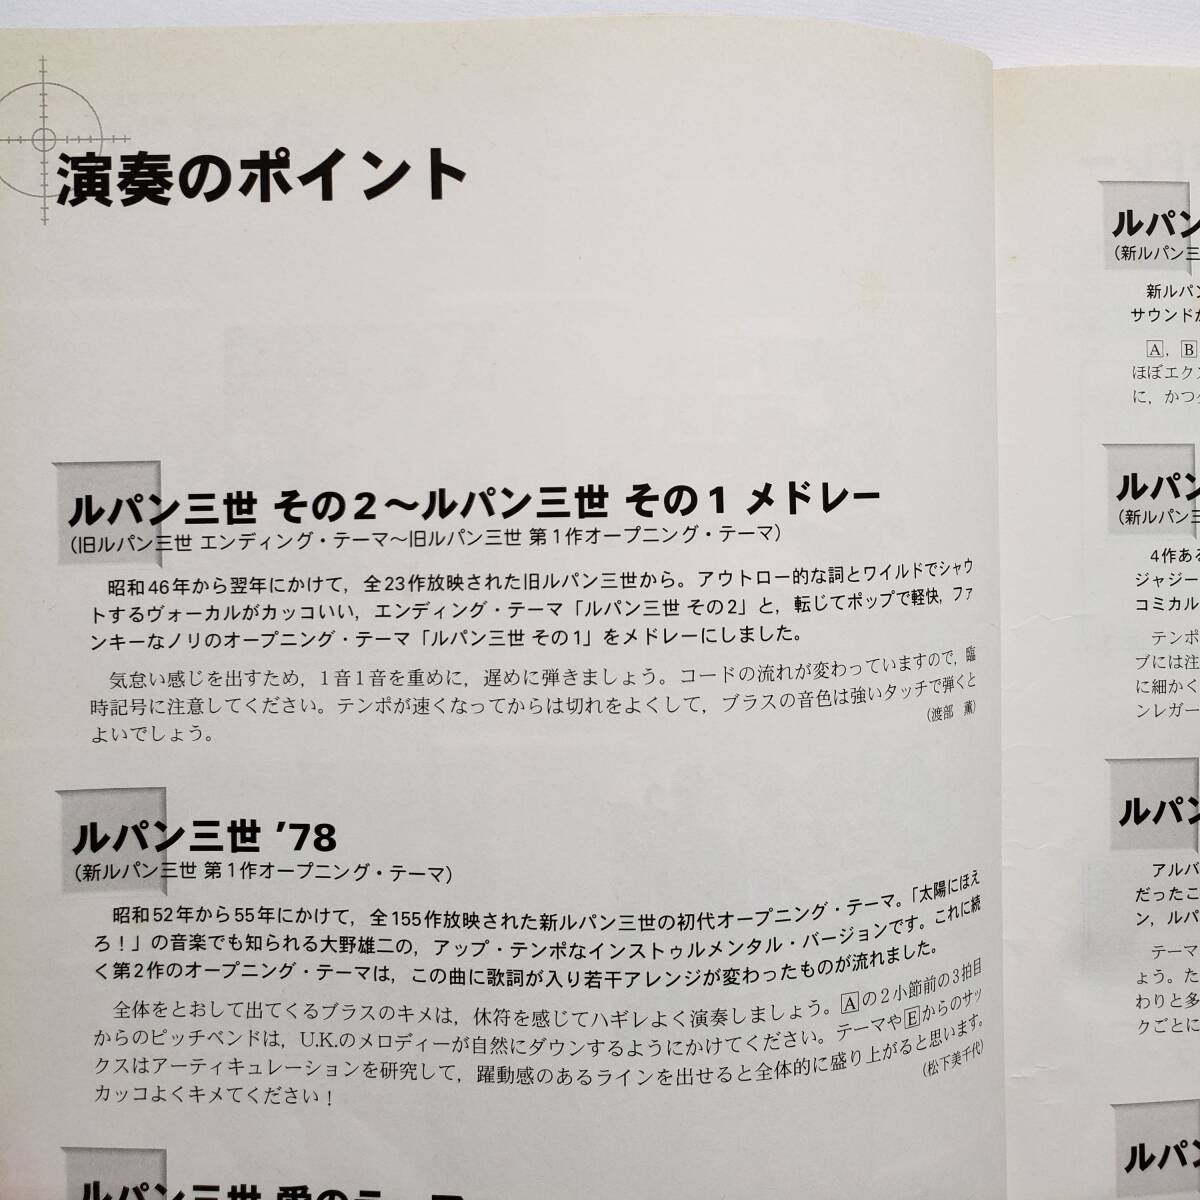 演奏のポイント
ルパン三世 その2〜ルパン三世 その1 メドレー
(旧ルパン三世 エンディング・テーマ〜旧ルパン三世 第1作オープニング・テーマ)
昭和46年から翌年にかけて，全23作放映された旧ルパン三世から。アウトロー的な詞とワイルドでシャウ
トするヴォーカルがカッコいい，エンディング・テーマ「ルパン三世 その2」と，転じてポップで軽快，ファ
ンキーなノリのオープニング・テーマ「ルパン三世 その1」をメドレーにしました。
気怠い感じを出すため，1音1音を重めに，遅めに弾きましょう。コードの流れが変わっていますので，臨
時記号に注意してください。テンポが速くなってからは切れをよくして，ブラスの音色は強いタッチで弾くと
よいでしょう。
(渡部 薫)
ルパン三世 ’78
(新ルパン三世 第1作オープニング・テーマ)
昭和52年から55年にかけて，全155作放映された新ルパン三世の初代オープニング・テーマ。「太陽にほえ
ろ！」の音楽でも知られる大野雄二の，アップ・テンポなインストゥルメンタル・バージョンです。これに続
く第2作のオープニング・テーマは，この曲に歌詞が入り若干アレンジが変わったものが流れました。
全体をとおして出てくるブラスのキメは，休符を感じてハギレよく演奏しましょう。Aの2小節前の3拍目
からのピッチベンドは，U.K.のメロディーが自然にダウンするようにかけてください。テーマやEからのサッ
クスはアーティキュレーションを研究して，躍動感のあるラインを出せると全体的に盛り上がると思います。
カッコよくキメてください！
(松下美千代)
ルパン三世 愛のテーマ
ルパン
(新ルパン三
新ルパン
サウンドか
A，B
ほぼエクス
に，かつ
ルパン
(新ルパン三
4作ある
ジャジー
コミカル
テンポ
ブには注
に細かく
ンレガー
ルパン
アルバ
だったこ
ン，ルパ
テーマ
ょう。た
わりと多
クごとに
ルパン